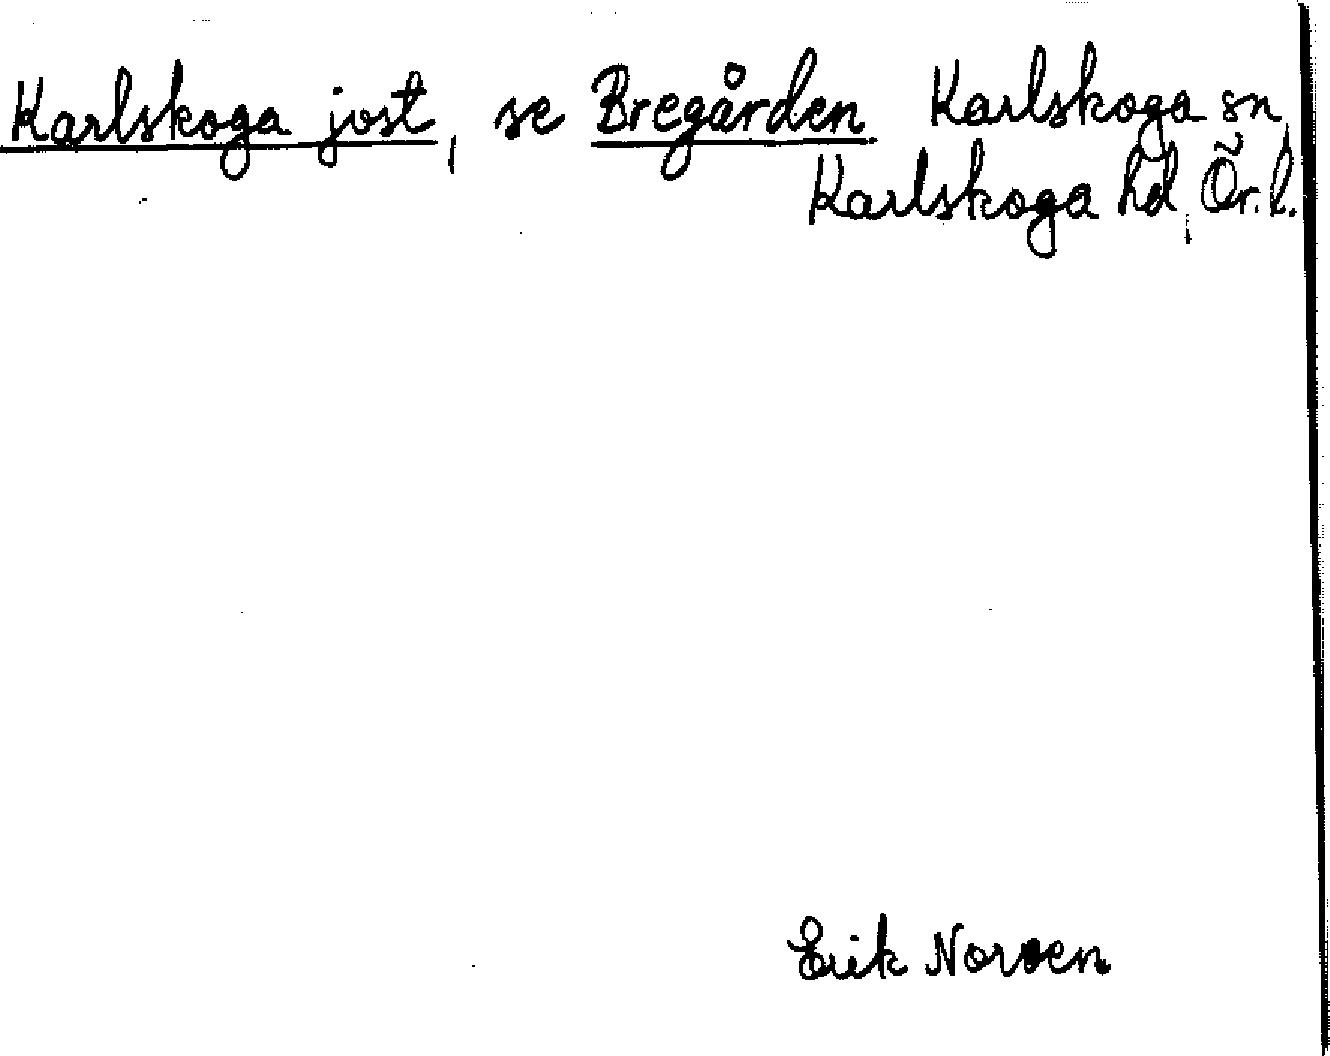 Karlskoga jost, se Bregården Karlskoga sn,
Karlskoga hd, Ör.l.
Erik Noreen